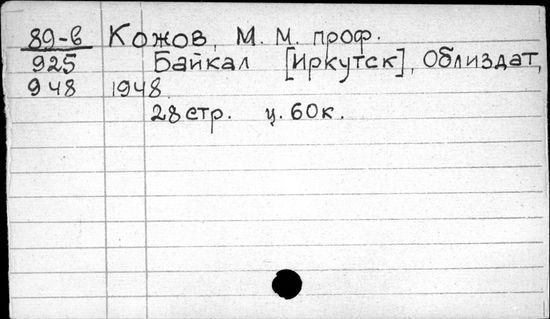 89-в Кожов, М. М. проф.
925 Байкал [Иркутск], Облиздат,
948 1948.
28 стр. ц. 60 к.